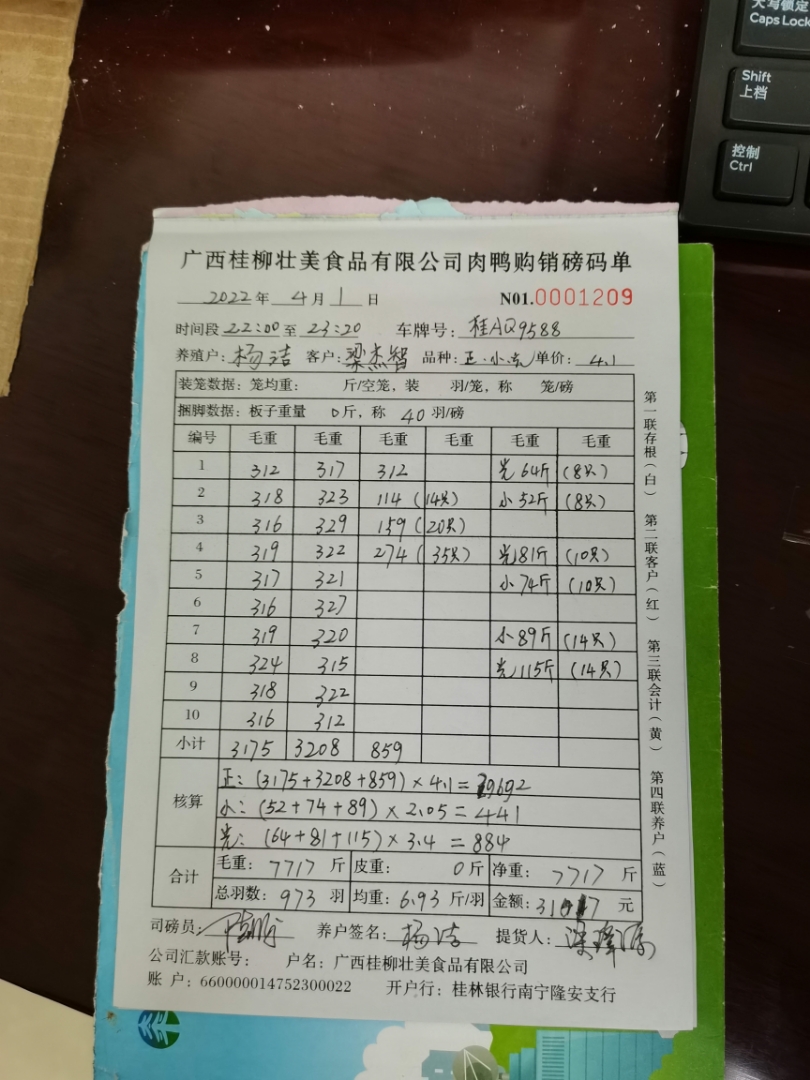 大写锁定
Caps Lock
Shift
上档
控制
Ctrl
广西桂柳壮美食品有限公司肉鸭购销磅码单
2022年 4月 1日 N01.0001209
时间段 22:00 至 23:20 车牌号: 桂AQ9588
养殖户: 杨洁 客户: 梁杰智 品种: 正·小·光 单价: 4.1
装笼数据: 笼均重: 斤/空笼, 装 羽/笼, 称 笼/磅
捆脚数据: 板子重量 0斤, 称 40 羽/磅
编号 毛重 毛重 毛重 毛重 毛重 毛重
1 312 317 312 光 64斤 (8只)
2 318 323 114 (14只) 小 52斤 (8只)
3 316 329 159 (20只)
4 319 322 274 (35只) 光81斤 (10只)
5 317 321 小 74斤 (10只)
6 316 327
7 319 320 小 89斤 (14只)
8 324 315 光 115斤 (14只)
9 318 322
10 316 312
小计 3175 3208 859
核算
正: (3175+3208+859) × 4.1 = 29692
小: (52+74+89) × 2.05 = 441
光: (64+81+115) × 3.4 = 884
合计
毛重: 7717 斤 皮重: 0斤 净重: 7717 斤
总羽数: 973 羽 均重: 6.93 斤/羽 金额: 31017 元
司磅员: 养户签名: 杨洁 提货人:
公司汇款账号: 户名: 广西桂柳壮美食品有限公司
账 户: 660000014752300022 开户行: 桂林银行南宁隆安支行
第一联存根(白) 第二联客户(红) 第三联会计(黄) 第四联养户(蓝)